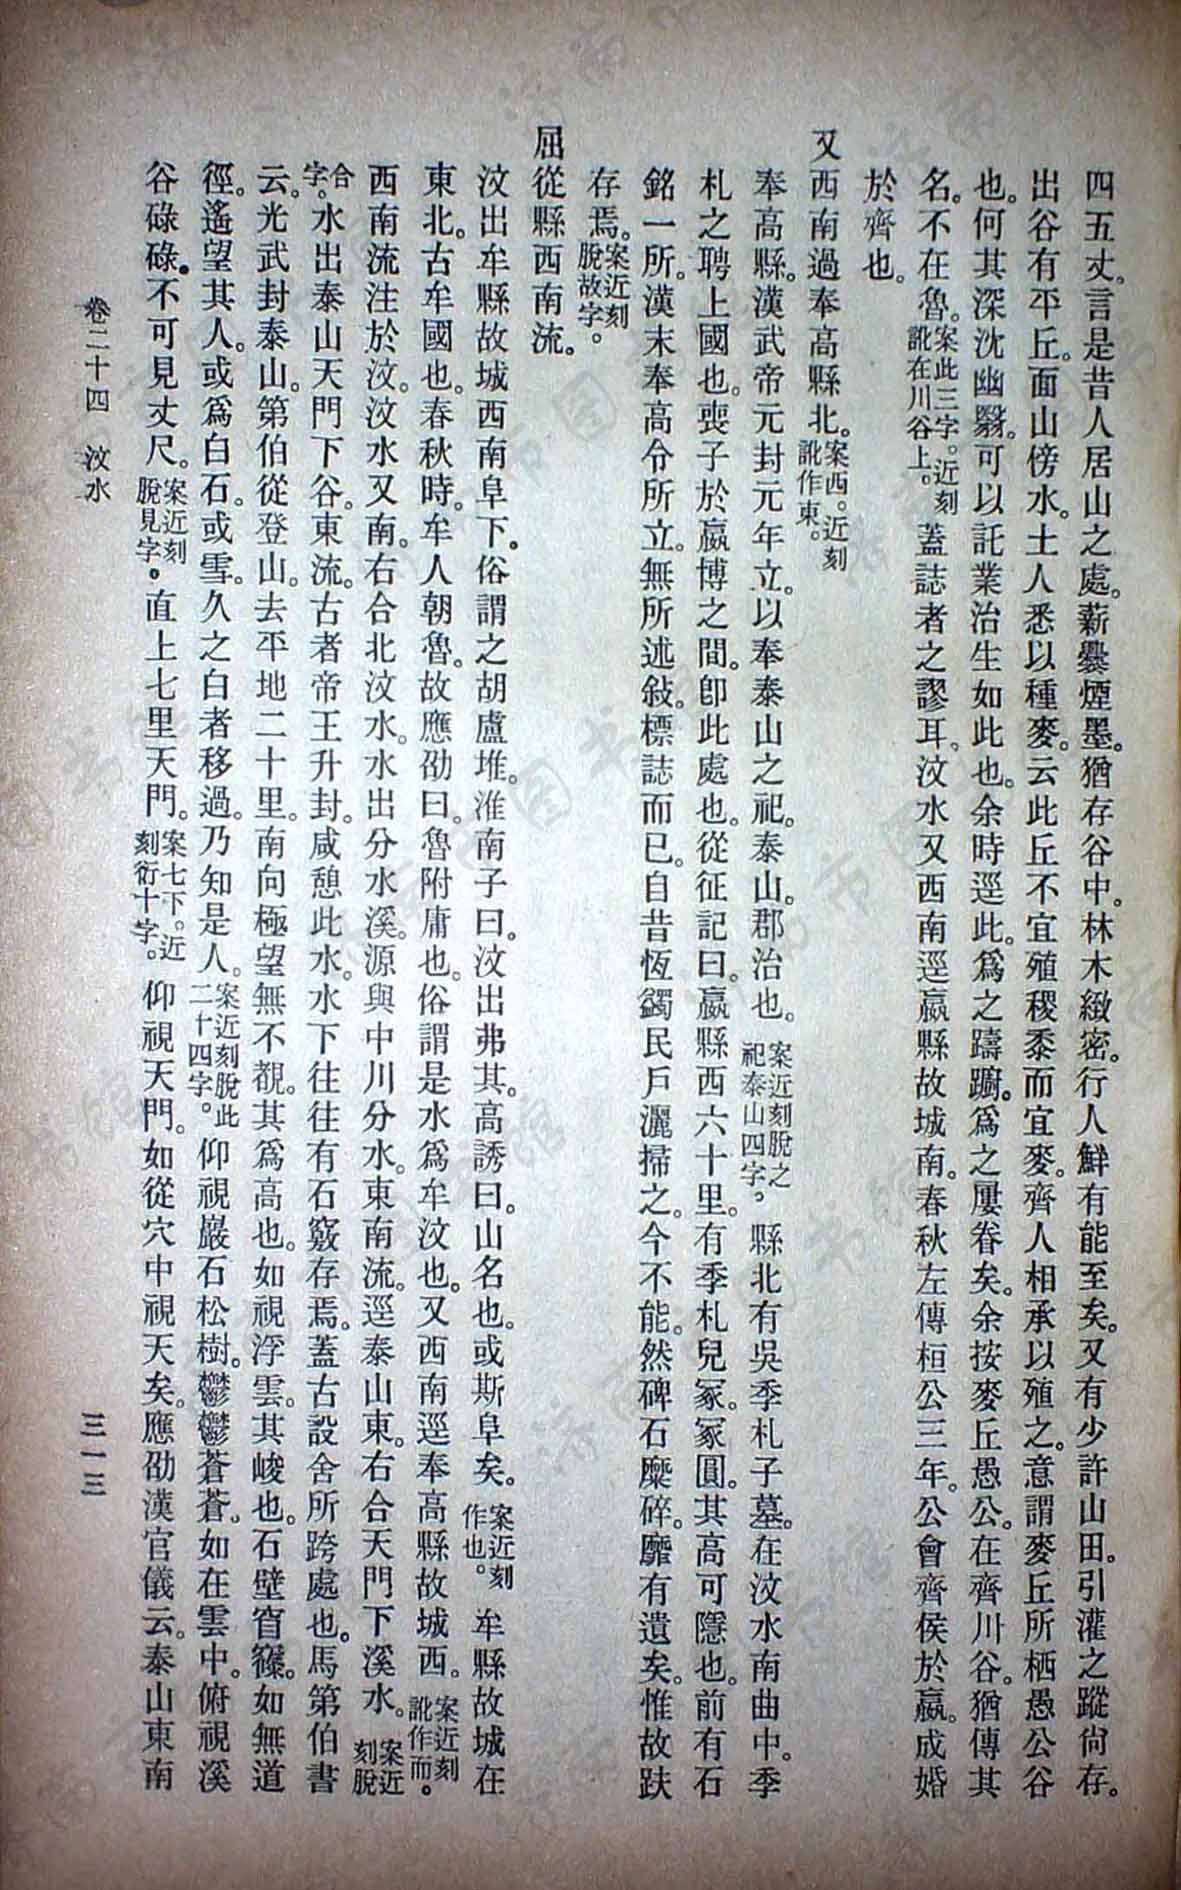 四五丈。言是昔人居山之處。薪爨煙墨。猶存谷中。林木緻密。行人鮮有能至矣。又有少許山田。引灌之蹤尙存。
出谷有平丘。面山傍水。土人悉以種麥。云此丘不宜殖稷黍而宜麥。齊人相承以殖之。意謂麥丘所栖愚公谷
也。何其深沈幽翳。可以託業治生如此也。余時逕此。爲之躊躕。爲之屢眷矣。余按麥丘愚公。在齊川谷。猶傳其
名。不在魯。案此三字。近刻訛在川谷上。蓋誌者之謬耳。汶水又西南逕嬴縣故城南。春秋左傳桓公三年。公會齊侯於嬴。成婚
於齊也。
又西南過奉高縣北。案西。近刻訛作東。
奉高縣。漢武帝元封元年立。以奉泰山之祀。泰山。郡治也。案近刻脫之祀泰山四字。縣北有吳季札子墓。在汶水南曲中。季
札之聘上國也。喪子於嬴博之間。卽此處也。從征記曰。嬴縣西六十里。有季札兒冢。冢圓。其高可隱也。前有石
銘一所。漢末奉高令所立。無所述敍。標誌而已。自昔恆蠲民戶灑掃之。今不能。然碑石糜碎。靡有遺矣。惟故趺
存焉。案近刻脫故字。
屈從縣西南流。
汶出牟縣故城西南阜下。俗謂之胡盧堆。淮南子曰。汶出弗其。高誘曰。山名也。或斯阜矣。案近刻作也。牟縣故城在
東北。古牟國也。春秋時。牟人朝魯。故應劭曰。魯附庸也。俗謂是水爲牟汶也。又西南逕奉高縣故城西。案近刻訛作而。
西南流注於汶。汶水又南。右合北汶水。水出分水溪。源與中川分水。東南流。逕泰山東。右合天門下溪水。案近刻脫
合字。水出泰山天門下谷。東流。古者帝王升封。咸憩此水。水下往往有石竅存焉。蓋古設舍所跨處也。馬第伯書
云。光武封泰山。第伯從登山。去平地二十里。南向極望無不覩。其爲高也。如視浮雲。其峻也。石壁窅窱。如無道
徑。遙望其人。或爲白石。或雪。久之白者移過。乃知是人。案近刻脫此二十四字。仰視巖石松樹。鬱鬱蒼蒼。如在雲中。俯視溪
谷碌碌。不可見丈尺。案近刻脫見字。直上七里天門。案七下。近刻衍十字。仰視天門。如從穴中視天矣。應劭漢官儀云。泰山東南
卷二十四 汶水
三一三